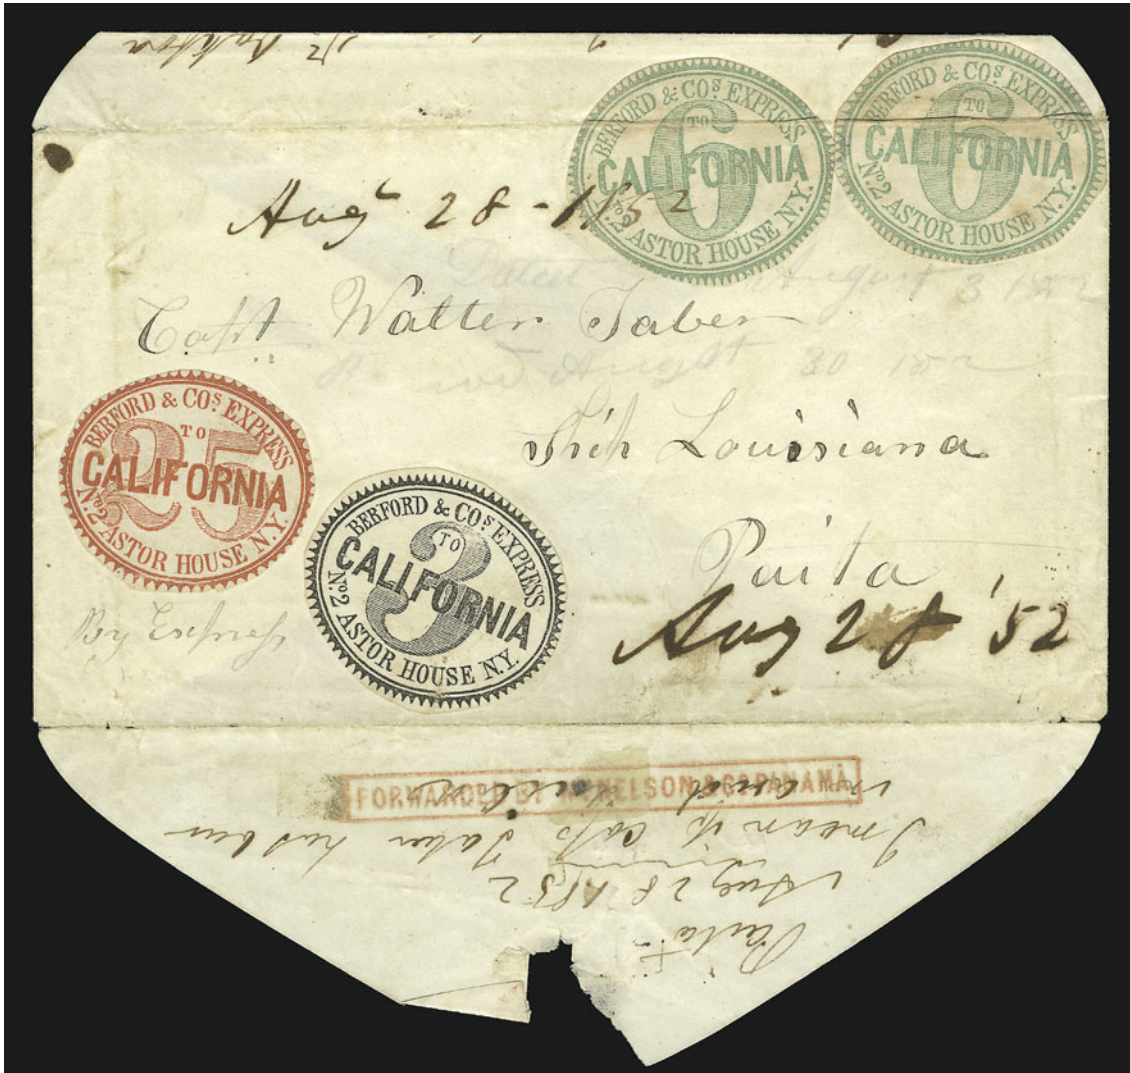 BERFORD & COS EXPRESS
6
TO
CALIFORNIA
No 2 ASTOR HOUSE N.Y.
BERFORD & COS EXPRESS
6
TO
CALIFORNIA
No 2 ASTOR HOUSE N.Y.
Augt 28 - 1852
Dated August 3 1852
Capt Walter Taber
August 30 1852
Ship Louisiana
BERFORD & COS EXPRESS
25
TO
CALIFORNIA
No 2 ASTOR HOUSE N.Y.
BERFORD & COS EXPRESS
3
TO
CALIFORNIA
No 2 ASTOR HOUSE N.Y.
Paita
By Express
Aug 28 '52
FORWARDED BY NELSON & CO PANAMA
Paita
Aug 28 1852
I mean if capt Taber has been
and